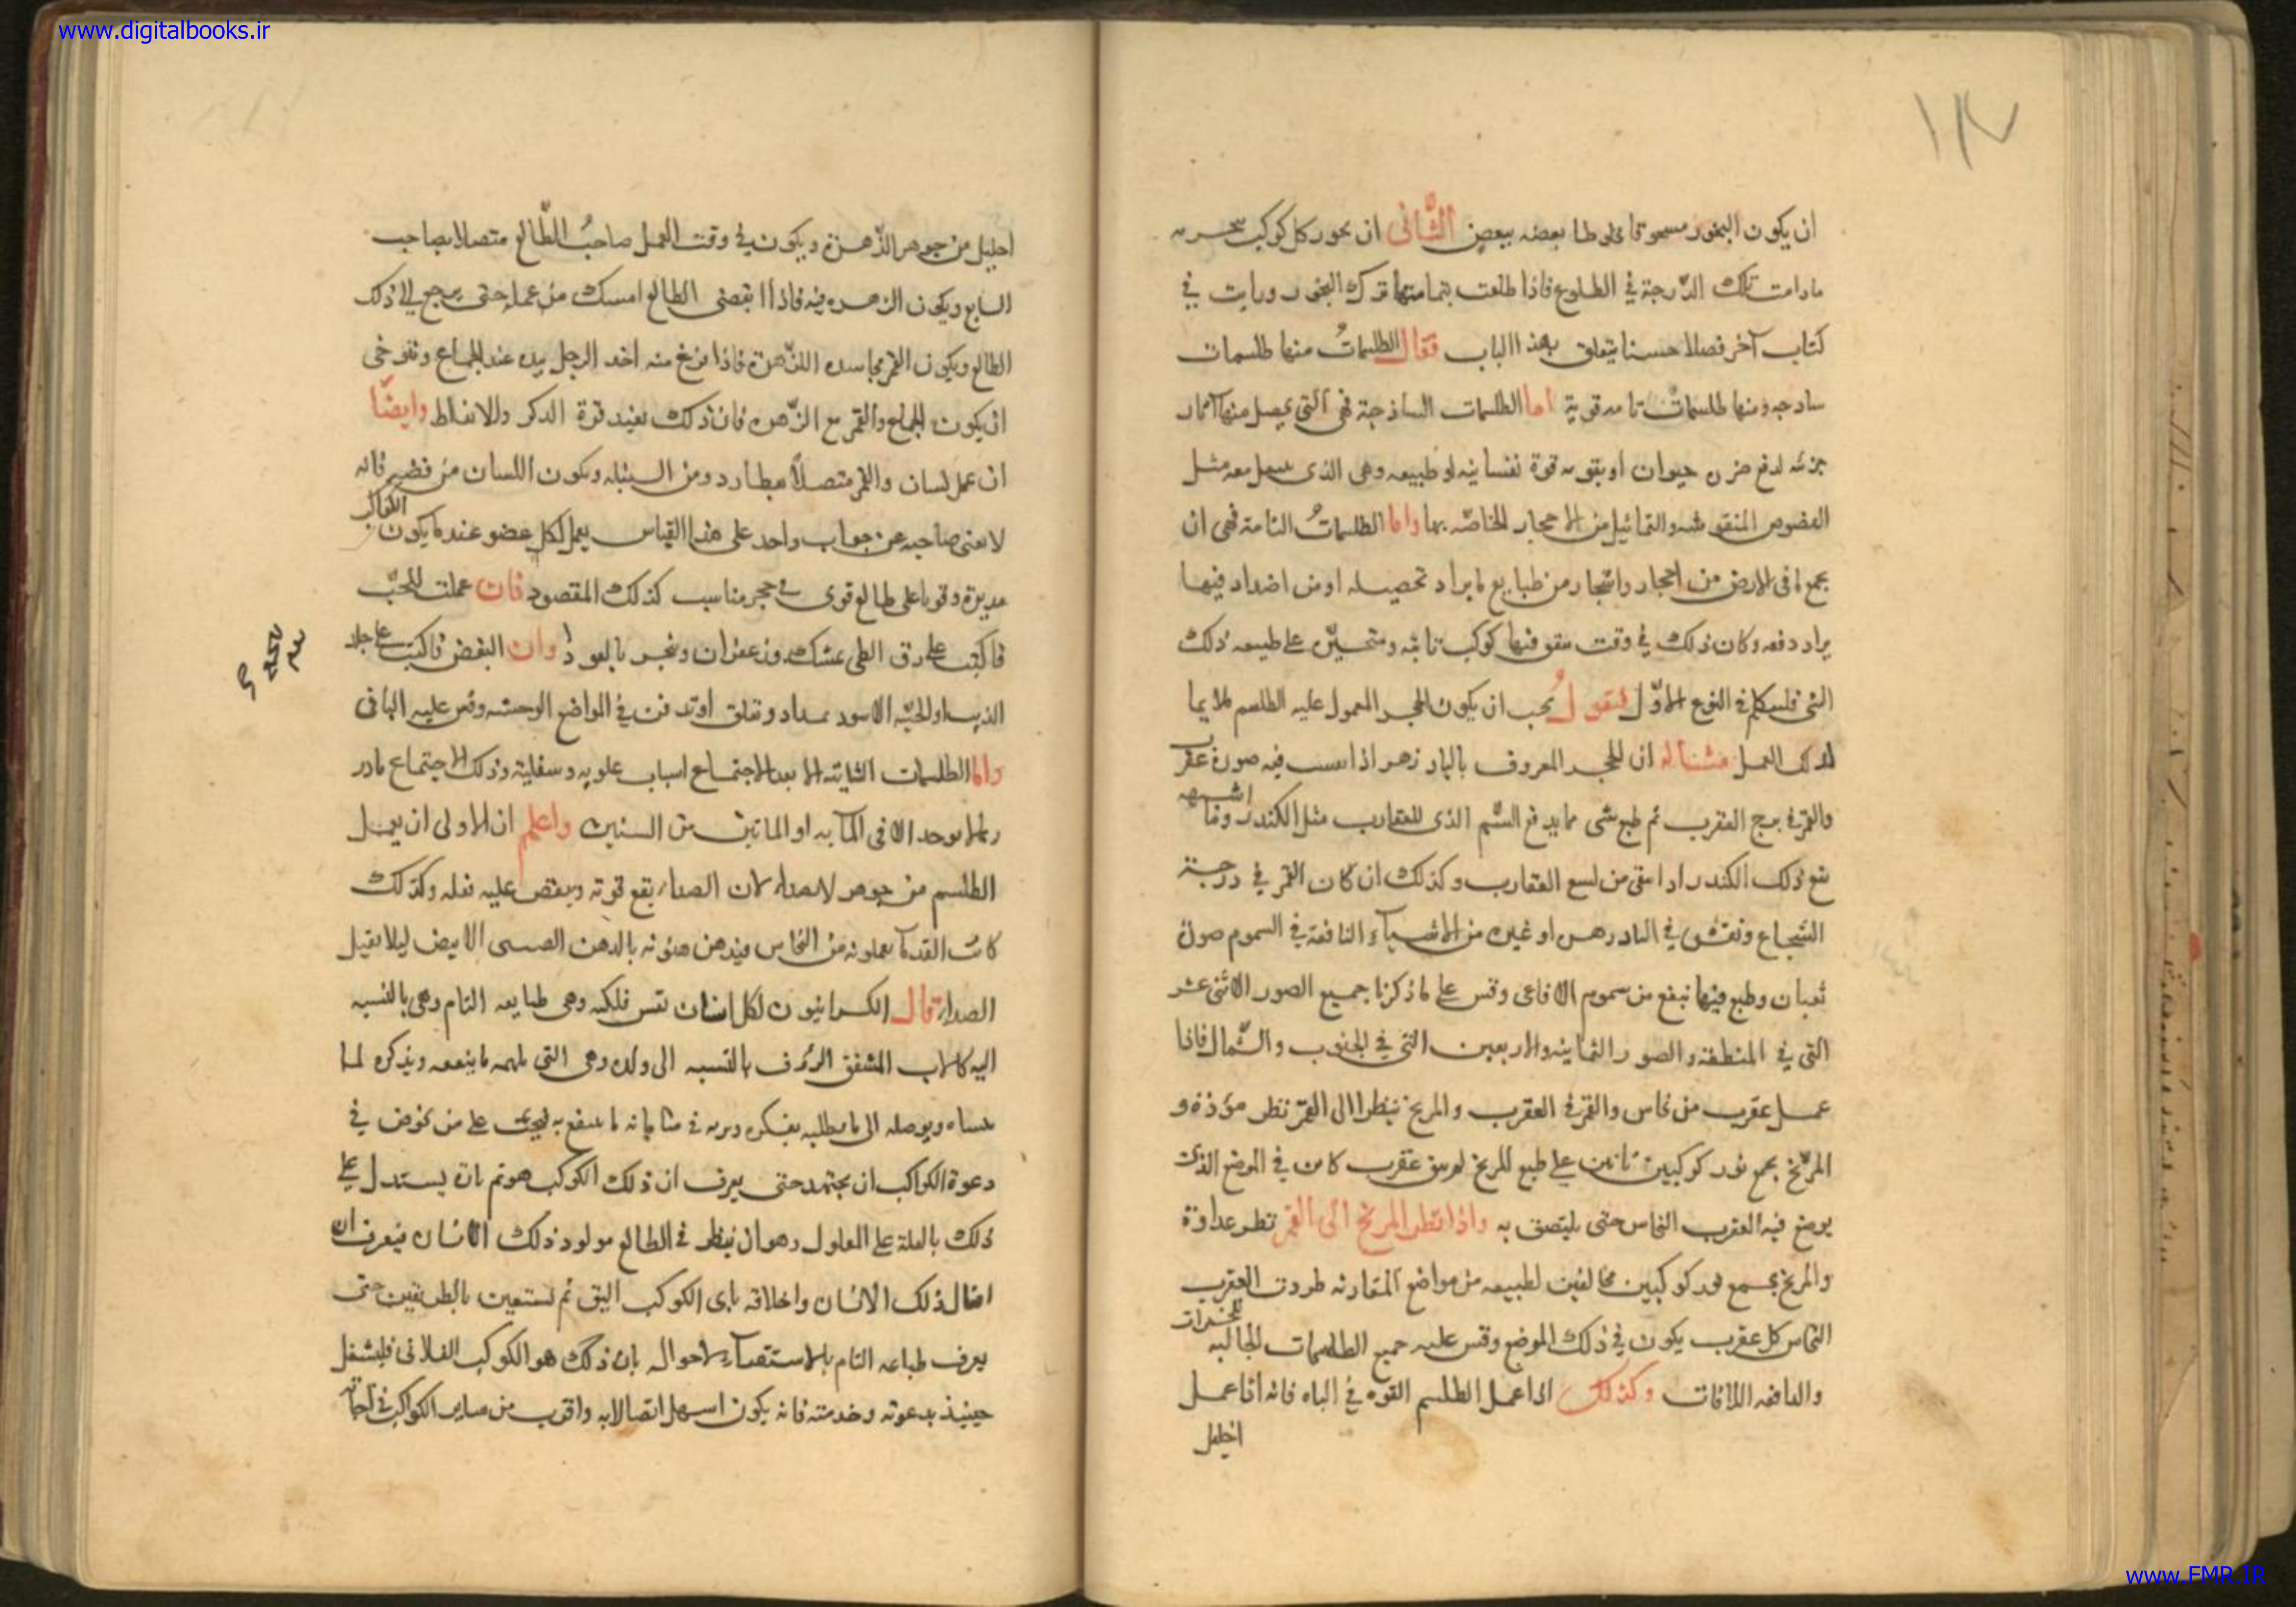 www.digitalbooks.ir
١١٧
ان يكون البخور مسحوقا مخلوطا بعضه ببعض الثّانى ان بخور كل كوكب
مادامت تلك الدّرجة في الطلوع فاذا طلعت بتمامتها ترك البخور ورايت في
كتاب آخر فصلا حسنا يتعلق بهذا الباب فقال الطلسماتُ منها طلسمات
سادجه ومنها طلسماتٌ تامه قوية اما الطلسمات الساذجة فهى التي يحصل منها آثار
جزئه لدفع ضرر حيوان او بقويه قوة نفسانيه او طبيعه وهى الذى معه مثل
الفصوص المنقوشه والتماثيل من الاحجار الخاصّه بها واما الطلسماتُ التامة فهى ان
يجمع ما فى الارض من احجار واشجار من طبايع ما يراد تحصيله او من اضداد فيها
يراد دفعه وكان ذلك في وقت يتفق فيها كوكب ثابته ومتحيّره على طبيعه ذلك
الشئ فلنتكلم في النوع الاوّل فنقولُ يجب ان يكون الحجر المعمول عليه الطلسم ملايما
لذلك العمل مثاله ان الحجر المعروف بالپاد زهر اذا فيه صورة عقرب
والقمر في برج العقرب ثم طبع شى مما يدفع السّم الذى للعقارب مثل الكندر وما اشبهه
نفع ذلك الكندر اذا سقى من لسع العقارب وكذلك ان كان القمر في درجة
الشجاع ونقش في البادزهر او غيره من الاشيآء النافعة في السموم صورة
ثعبان وطبع فيها نفع من سموم الافاعى وقس على ما ذكرنا جميع الصور الاثنى عشر
التي في المنطقة والصور الثمانيه والاربعين التي في الجنوب والشّمال فاذا
عمل عقرب من نحاس والقمر في العقرب والمريخ ينظر الى القمر نظر مودة و
المرّيخ يجمع نور كوكبين ثابتين على طبع المريخ لم يبق عقرب كامن في الموضع الذى
يوضع فيه العقرب النحاس حتى يلتصق به واذا نظر المريخ الى القمر نظر عداوة
والمريخ يجمع نور كوكبين مخالفين لطبيعه من مواضع المقارنه طردت العقرب
النحاس كل عقرب يكون في ذلك الموضع وقس عليه جميع الطلسمات الجالبه للخيرات
والدافعه للافات وكذلك اذا عمل الطلسم القوه في الباه فانه اذا عمل
احليل
احليل من جوهر الزّهرة ويكون في وقت العمل صاحبُ الطّالع متصلا بصاحب
السابع ويكون الزهره فيه فاذا انقضى الطالع امسك من عمله حتى يرجع الى ذلك
الطالع ويكون القمر مجاسده الزّهرة فاذا فرغ منه اخذ الرجل بيده عند الجماع وتوخى
ان يكون الجماع والقمر مع الزّهره فان ذلك يفيد قوة الذكر والانعاظ وايضاً
ان عمل لسان والقمر متصلاً بعطارد ومن السنبله ويكون اللسان من فضه فانه
لا يعنى صاحبه عن جواب واحد على هذا القياس يعمل لكل عضو عند ما يكون الكواكب
مديرة وقويا على طالع قوى في حجر مناسب كذلك المقصود فان عملت للحبّ
فاكتب على رق الظبى بمشك وزعفران وتبخر بالعود وان البغض فاكتب على جلد
الذيب او الحيّه الاسود بمداد وتعلق او تدفن في المواضع الوحشه وقس عليه الباقى
واما الطلسمات الثابته الا بعد الاجتماع اسباب علويه وسفلية وذلك الاجتماع نادر
ربما لا يوجد الا فى المآيه او الماتين من السنين واعلم ان الاولى ان يعمل
الطلسم من جوهر لا يصدا لان الصدا يقع قوته وينقص عليه فعله وكذلك
كانت القدمآ يعملونه من النحاس ويدهنونه بالدهن الصينى الابيض ليلا يقبل
الصدا قال الكسدانيون لكل انسان نفس فلكيه وهى طبايعه التام وهى بالنسبه
اليه كالاب المشفق الرؤف بالنسبه الى ولده وهى التي يلهمه ما ينفعه ويذكره لما
ينساه ويوصله الى ما يطلبه بفكره ويريه في مناماته ما ينتفع به فيجب على من يخوض في
دعوة الكواكب ان يجتهد حتى يعرف ان ذلك الكوكب هو ثم تارة يستدل على
ذلك بالعلة على المعلول وهو ان ينظر في الطالع مولود ذلك الانسان فيعرف ان
افعال ذلك الانسان واخلاقه باى الكوكب اليق ثم نستعين بالطريقين حتى
يعرف طباعه التام بالاستقصآء لاحواله بان ذلك هو الكوكب الفلانى فليشغل
حينيذ بدعوته وخدمته فانه يكون اسهل اتصالا به واقرب من ساير الكواكب في
www.FMR.IR